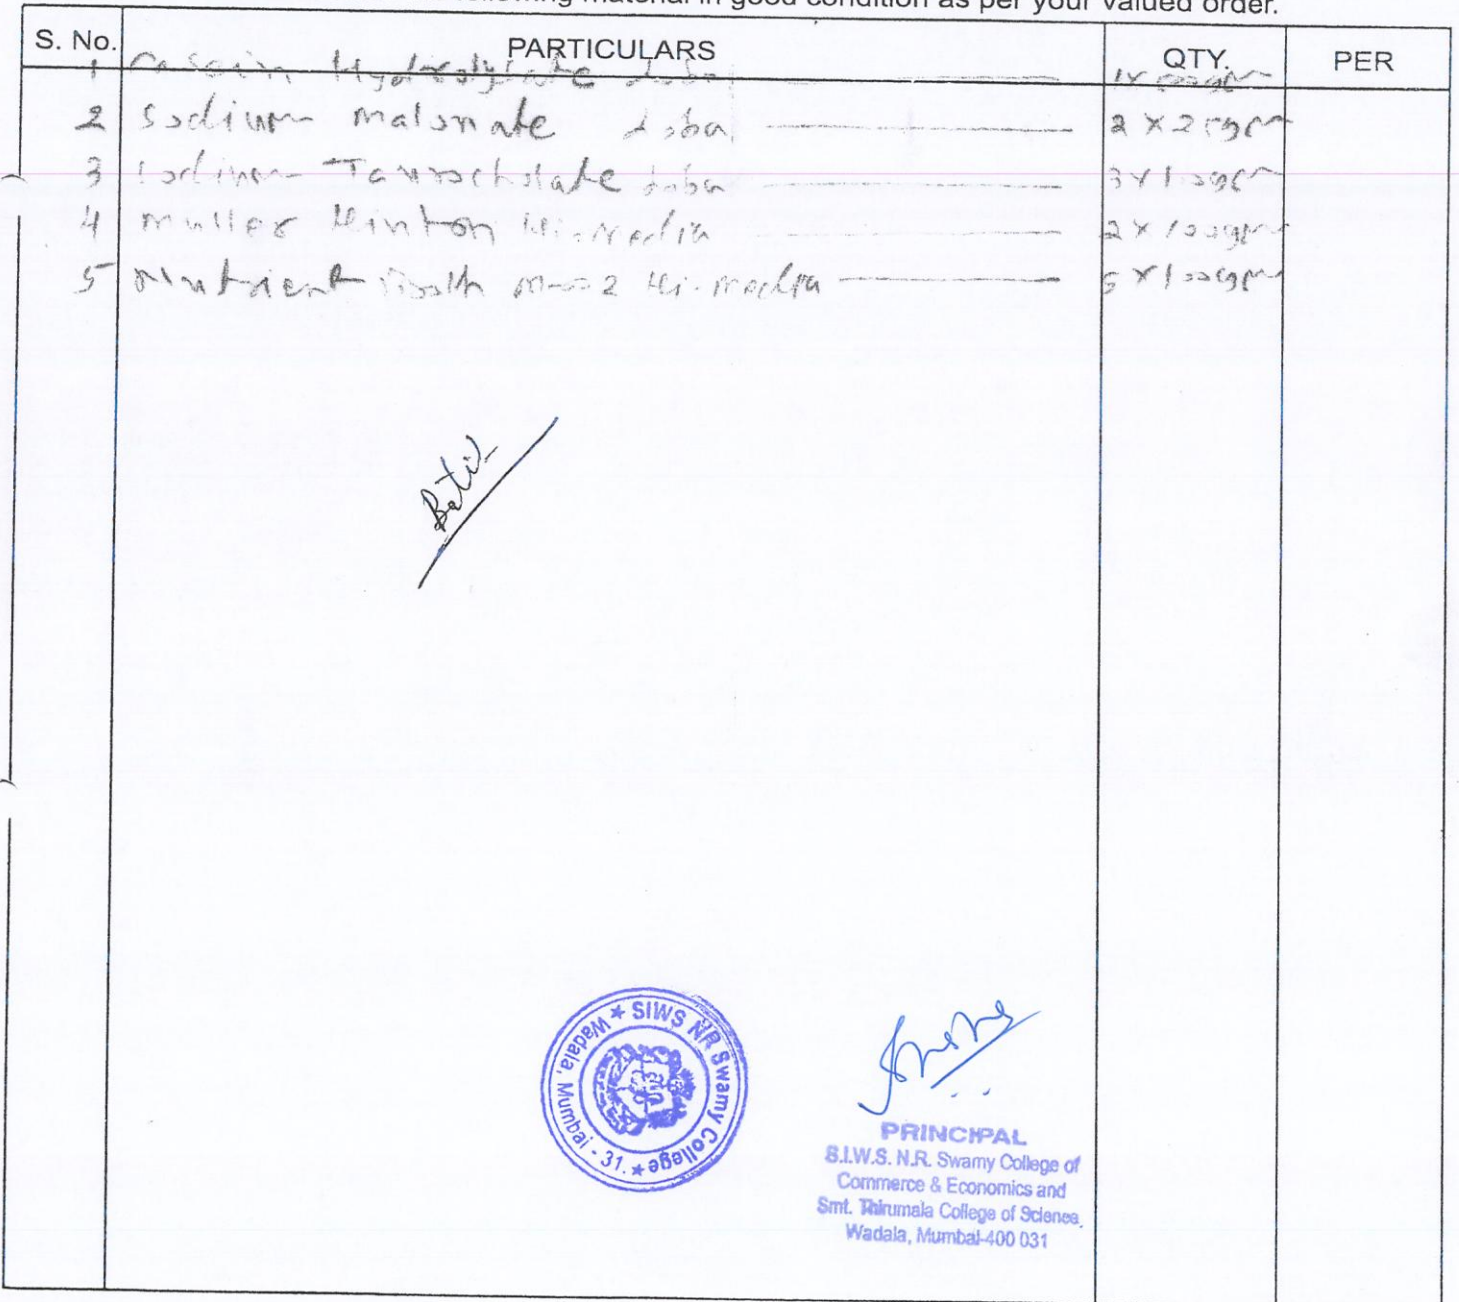 following material in good condition as per your valued order.
S. No. PARTICULARS QTY. PER
1 Casein Hydrolysate Loba
2 Sodium malonate Loba 2 x 25gm
3 Sodium Taurocholate Loba 3 x 100gm
4 Muller Hinton Hi-media 2 x 100gm
5 Nutrient Broth M-002 Hi-media 5 x 100gm
★ SIWS NR Swamy College ★
Wadala, Mumbai - 31.
PRINCIPAL
S.I.W.S. N.R. Swamy College of
Commerce & Economics and
Smt. Thirumala College of Science,
Wadala, Mumbai-400 031